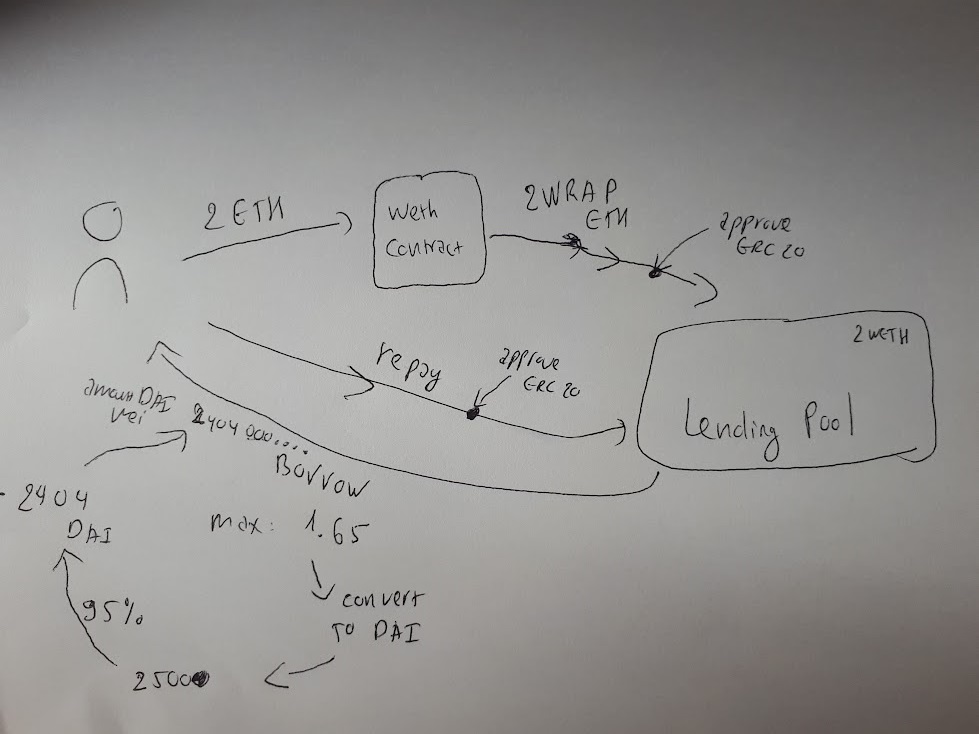 2 ETH
Weth
Contract
2WRAP
ETH
approve
ERC 20
2 WETH
Lending Pool
repay
approve
ERC 20
DAI
2404 000....
Borrow
- 2404
DAI
max: 1.65
convert
TO DAI
95%
2500